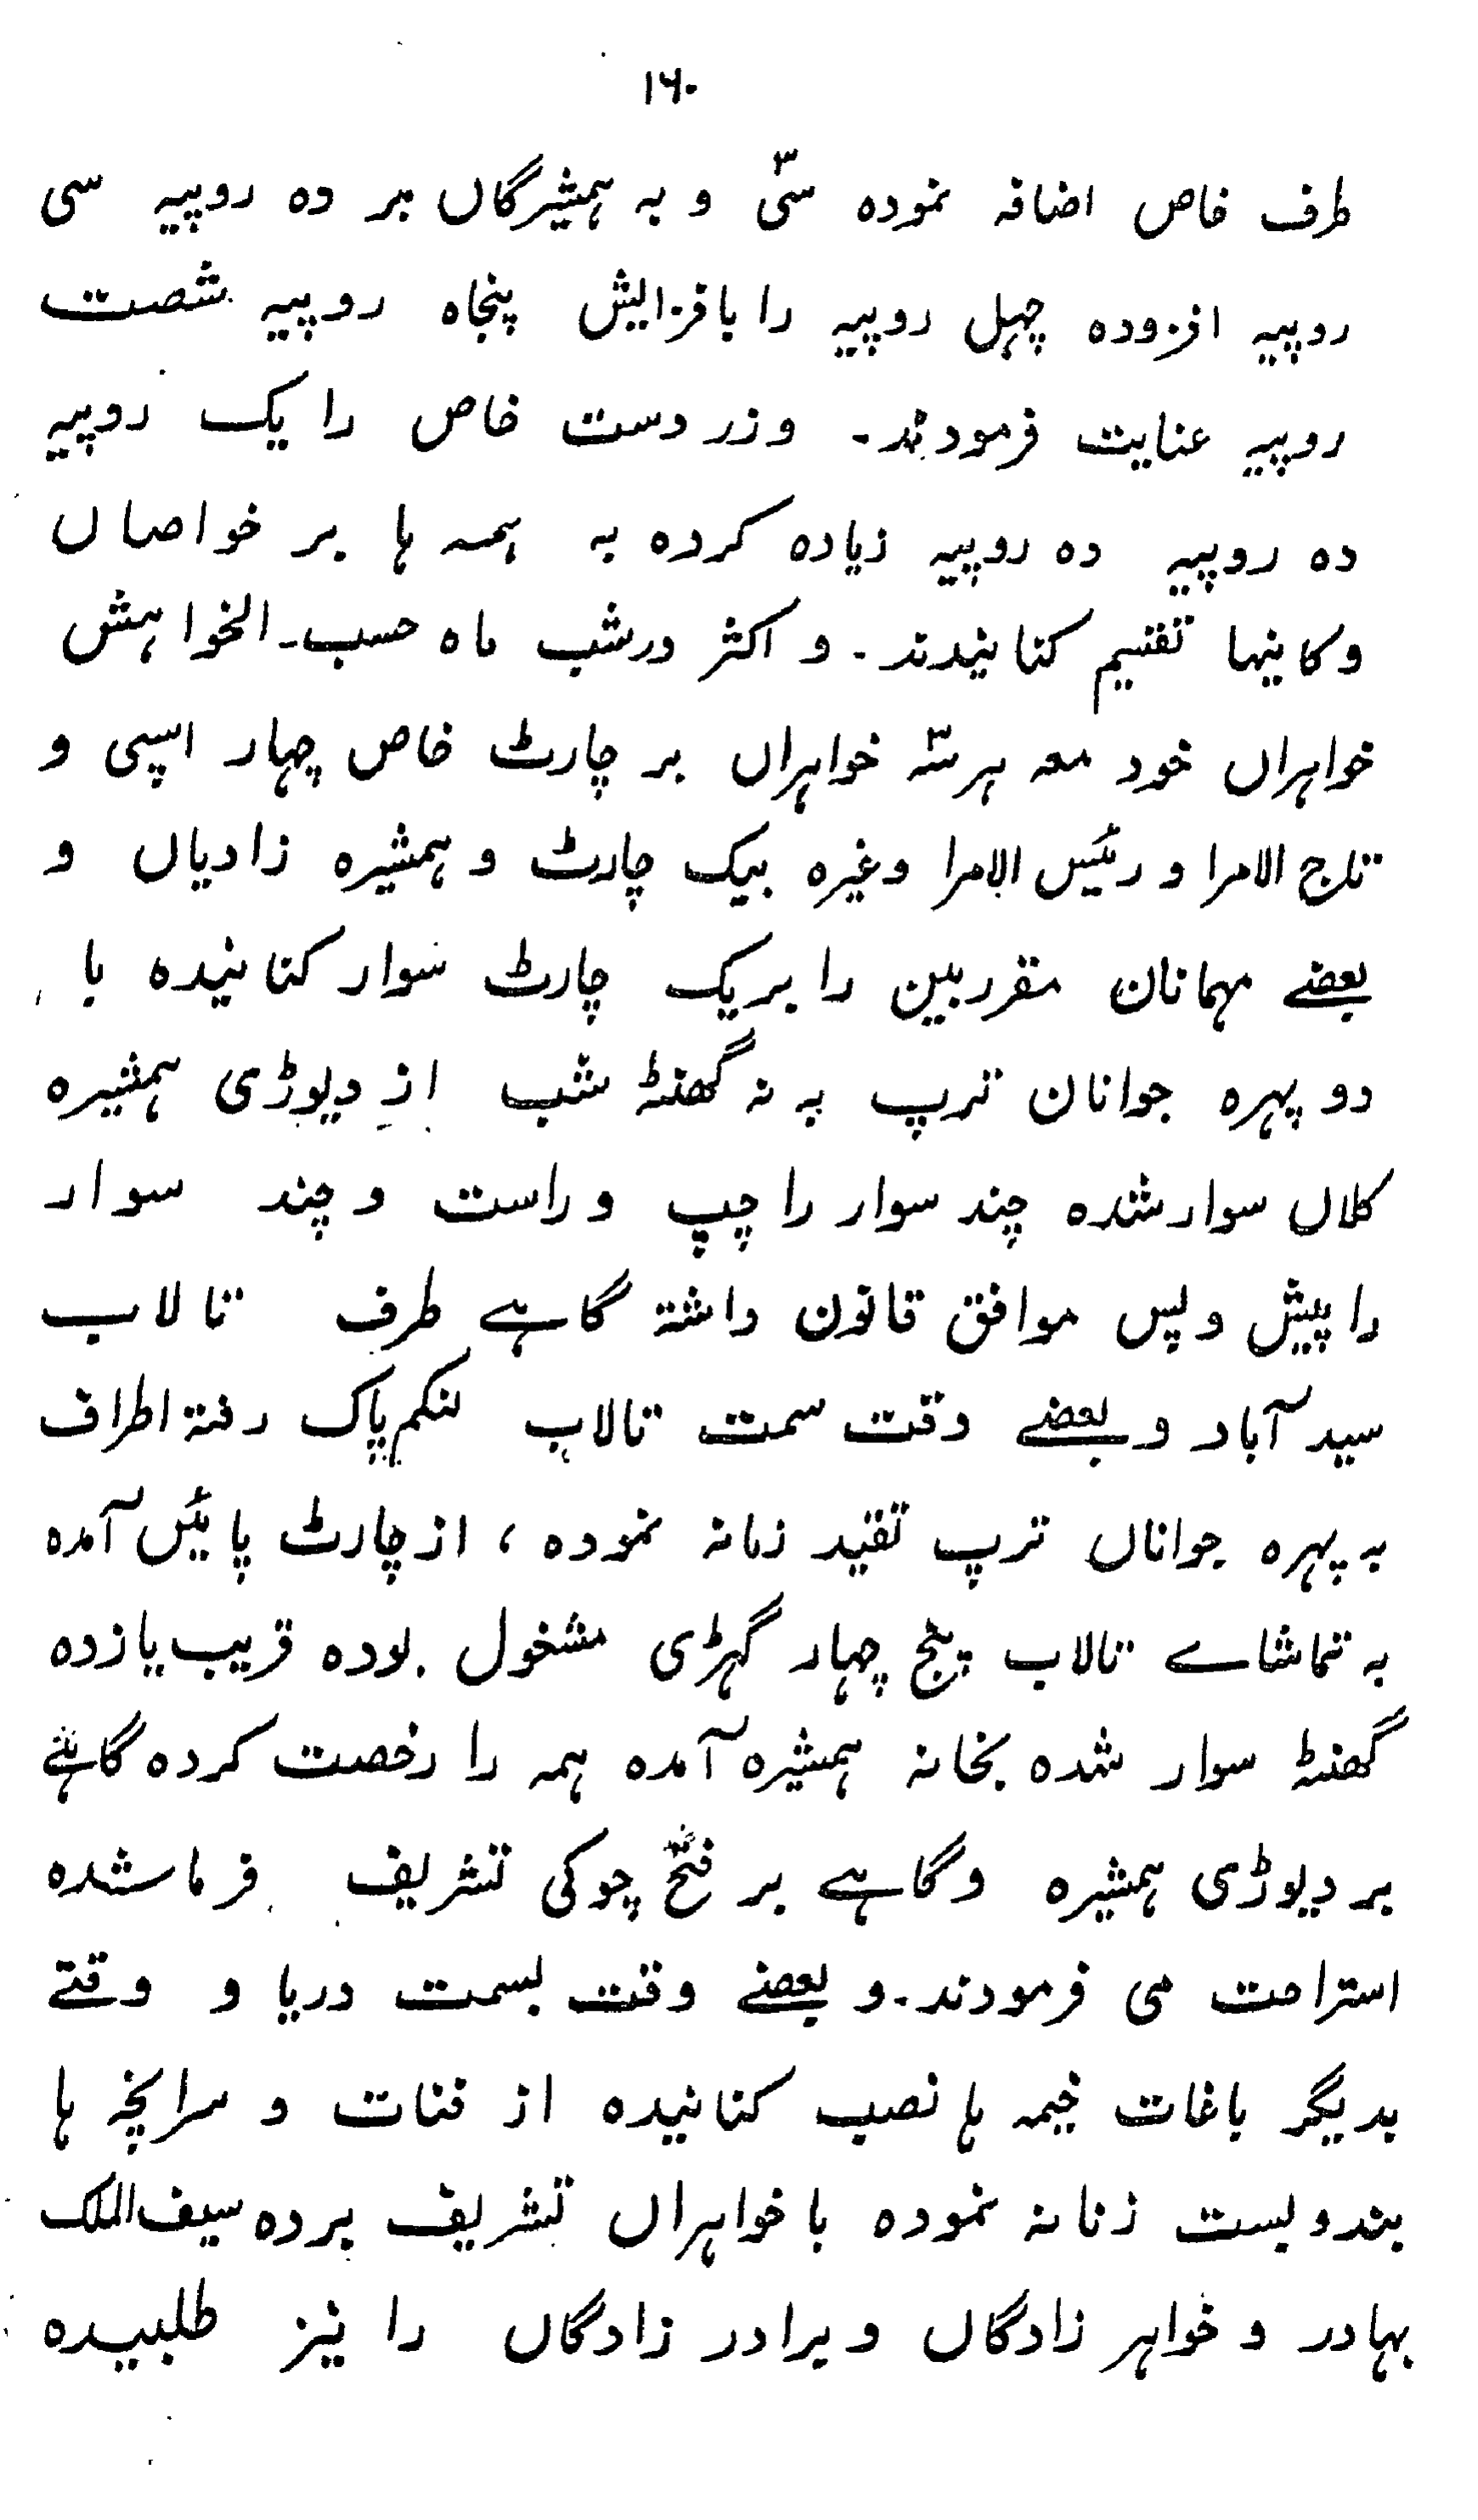 ۱۶۰
طرف خاص اضافہ نمودہ سیّ و بہ ہمشیرگاں بر دہ روپیہ سی
روپیہ افزودہ چہل روپیہ را بافزایش پنجاہ روپیہ شصت
روپیہ عنایت فرمودند۔ وزر دست خاص را یک روپیہ
دہ روپیہ دہ روپیہ زیادہ کردہ بہ ہمہ ہا بر خواصاں
وکاینہا تقسیم کنانیدند۔ و اکثر در شب ماہ حسب۔الخواہش
خواہراں خود معہ ہر سہ خواہراں بر چارٹ خاص چہار اسپی و
تاج الامرا و رئیس الامرا وغیرہ بیک چارٹ و ہمشیرہ زادیاں و
بعضے مہمانان مقربین را بریک چارٹ سوار کنانیدہ با
دو پہرہ جوانان ترپ بہ نہ گھنٹہ شب از دیوڑی ہمشیرہ
کلاں سوار شدہ چند سوار را چپ و راست و چند سوار
را پیش و پس موافق قانون داشتہ گاہے طرف تالاب
سید آباد و بعضے وقت سمت تالاب لنگم پاک رفتہ اطراف
بہ پہرہ جواناں ترپ تقید زمانہ نمودہ ، از چارٹ پائیں آمدہ
بہ تماشاے تالاب پنج چہار گہڑی مشغول بودہ قریب یازدہ
گھنٹہ سوار شدہ بخانہ ہمشیرہ آمدہ ہمہ را رخصت کردہ گاہے
بر دیوڑی ہمشیرہ وگاہے بر فتح چوکی تشریف فرما شدہ
استراحت می فرمودند۔ و بعضے وقت بسمت دریا و وقتے
بدیگر باغات خیمہ ہا نصب کنانیدہ از قنات و سرانچہ ہا
بندوبست زنانہ نمودہ با خواہراں تشریف بردہ سیف الملک
بہادر و خواہر زادگاں و برادر زادگاں را نیز طلبیدہ